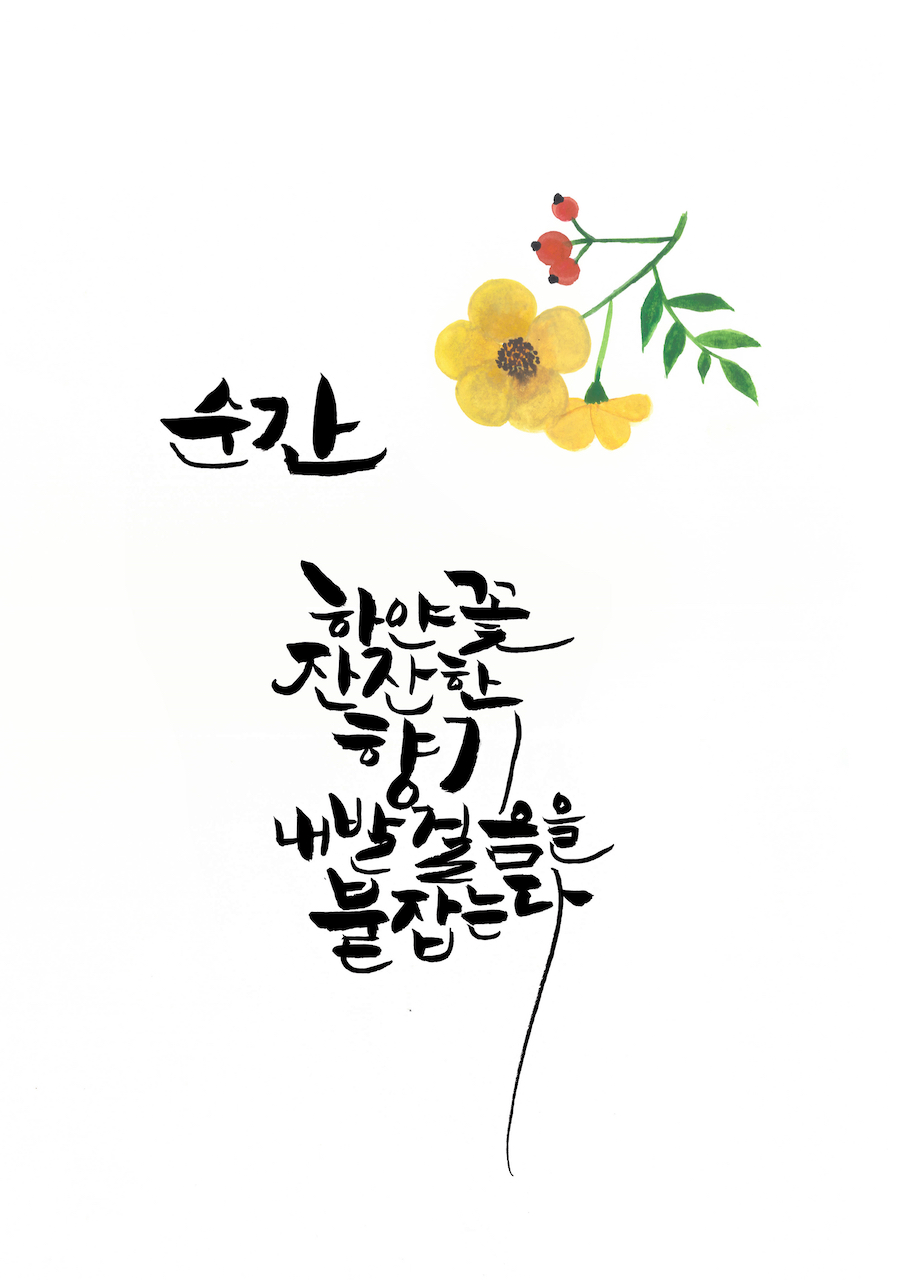 순간
하얀꽃
잔잔한
향기
내발걸음을
붙잡는다